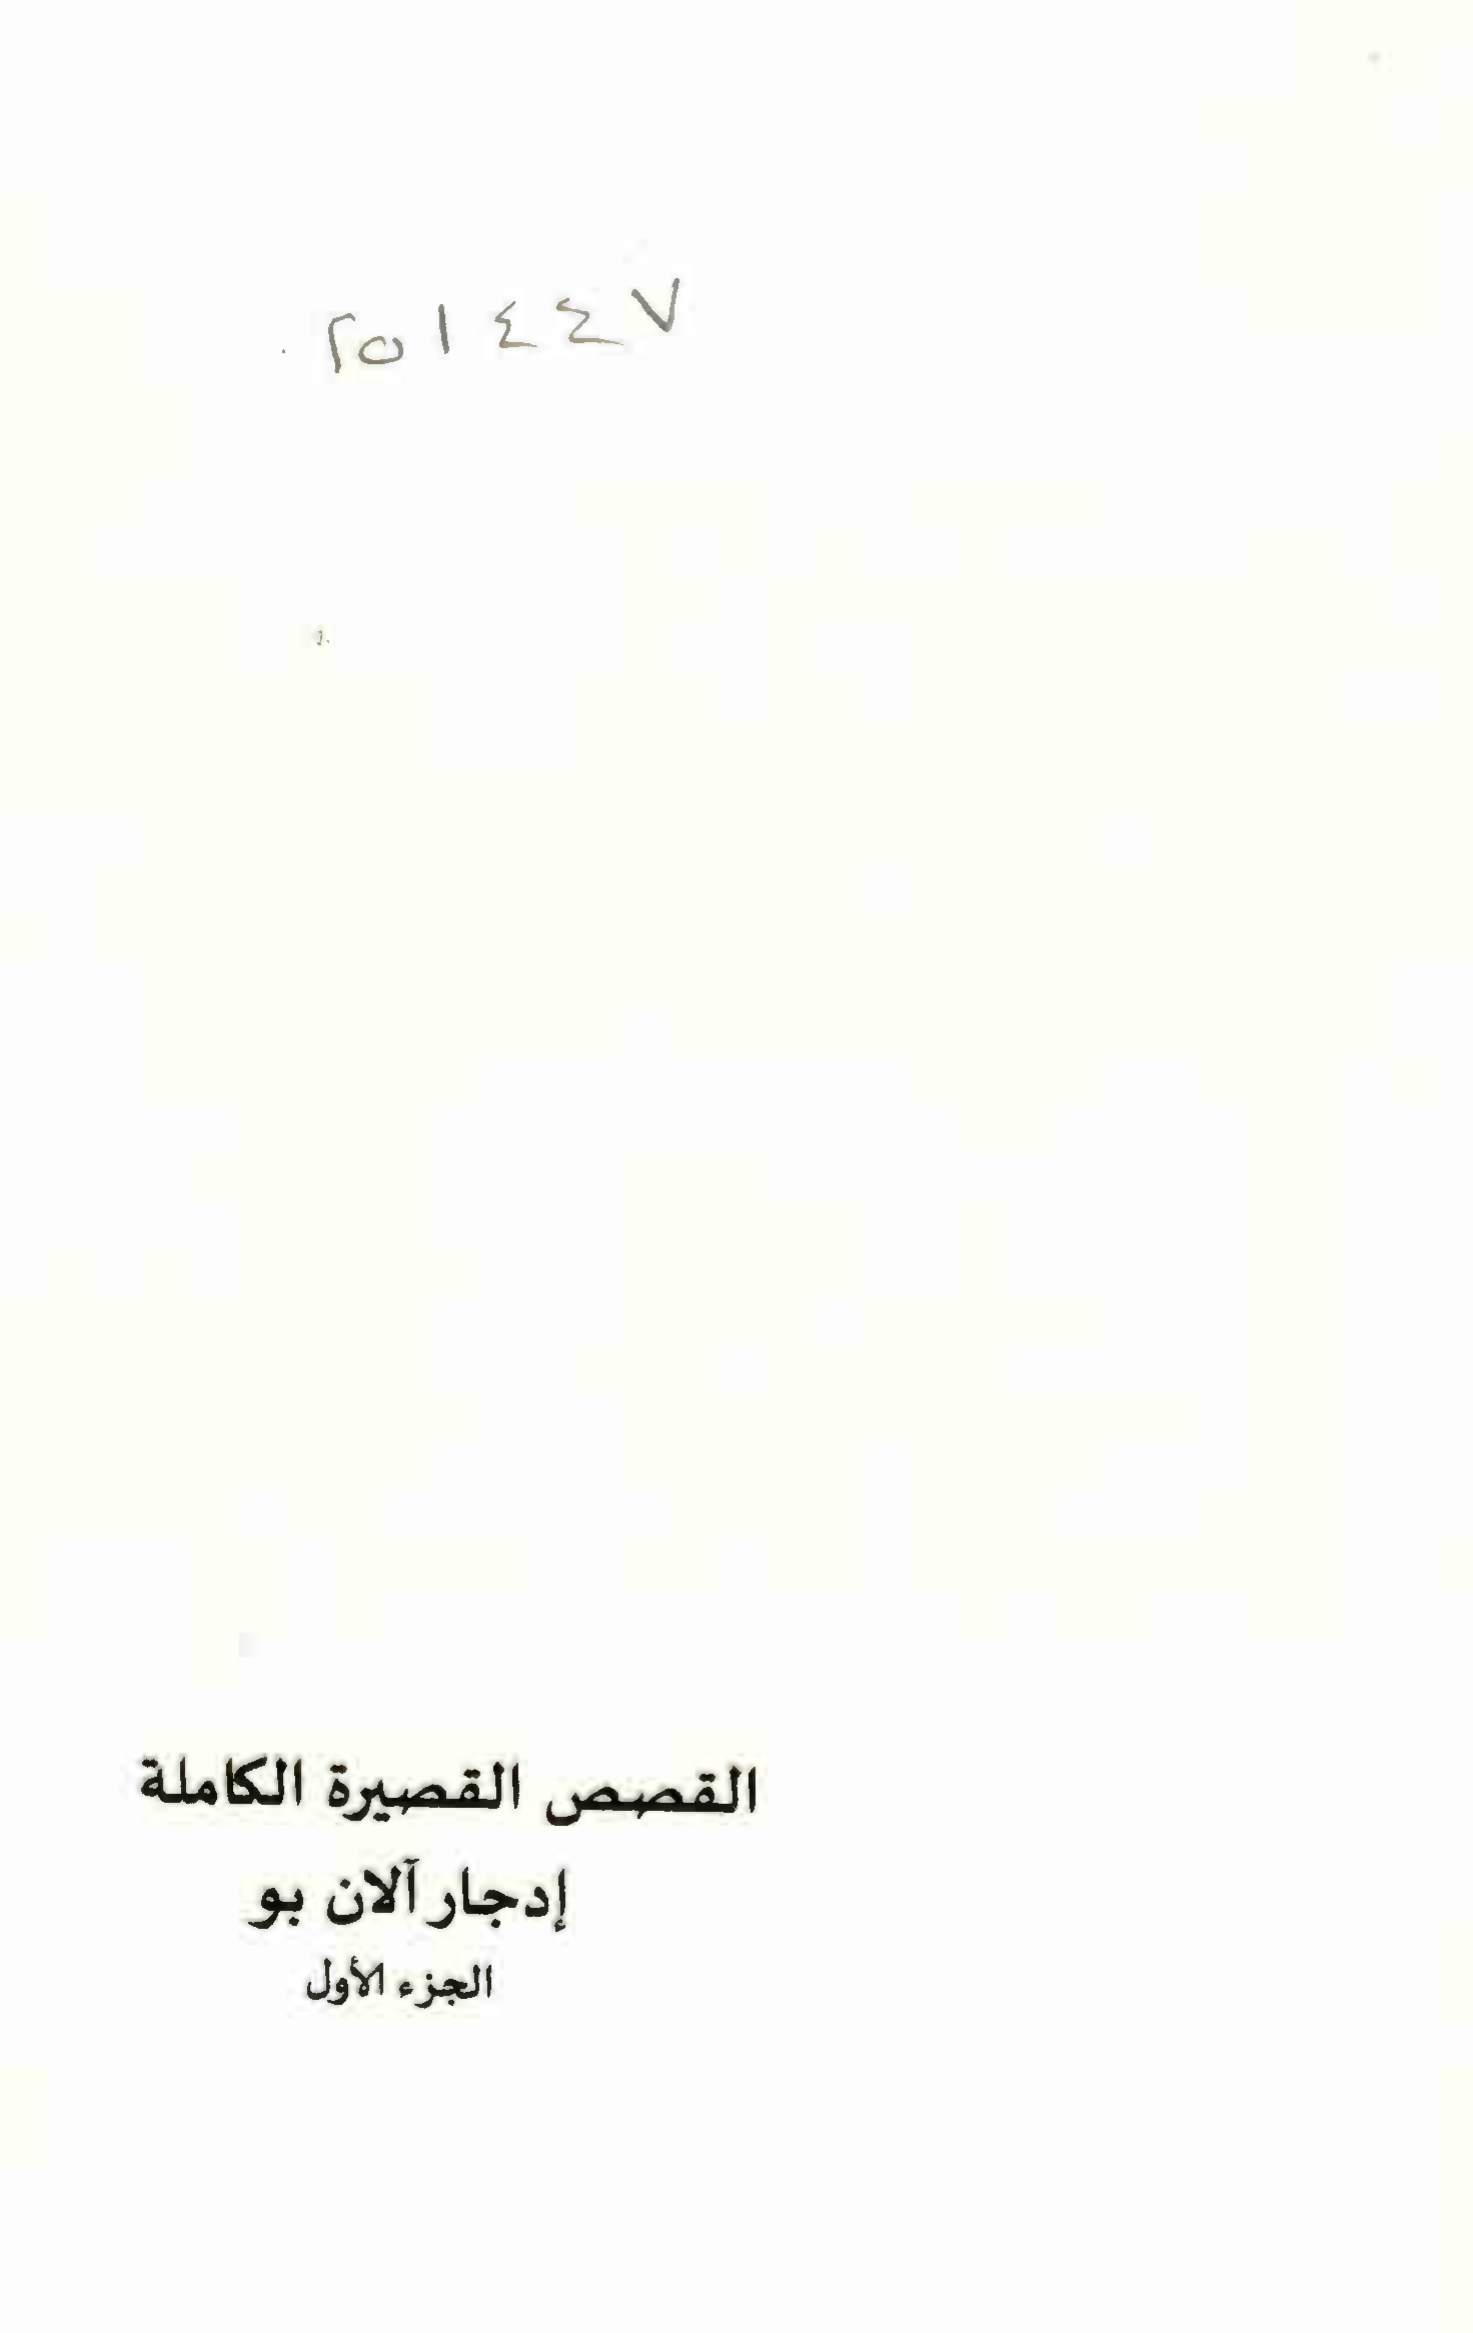 ٢٥١٤٤٧
القصص القصيرة الكاملة
إدجار آلان بو
الجزء الأول